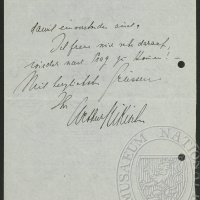 damit einverstanden sind.
Ich freue mich sehr darauf,
wieder nach Prag zu kommen.
Mit herzlichsten Grüssen
Ihr
Arthur Nikisch
MUSAEUM NATIONA